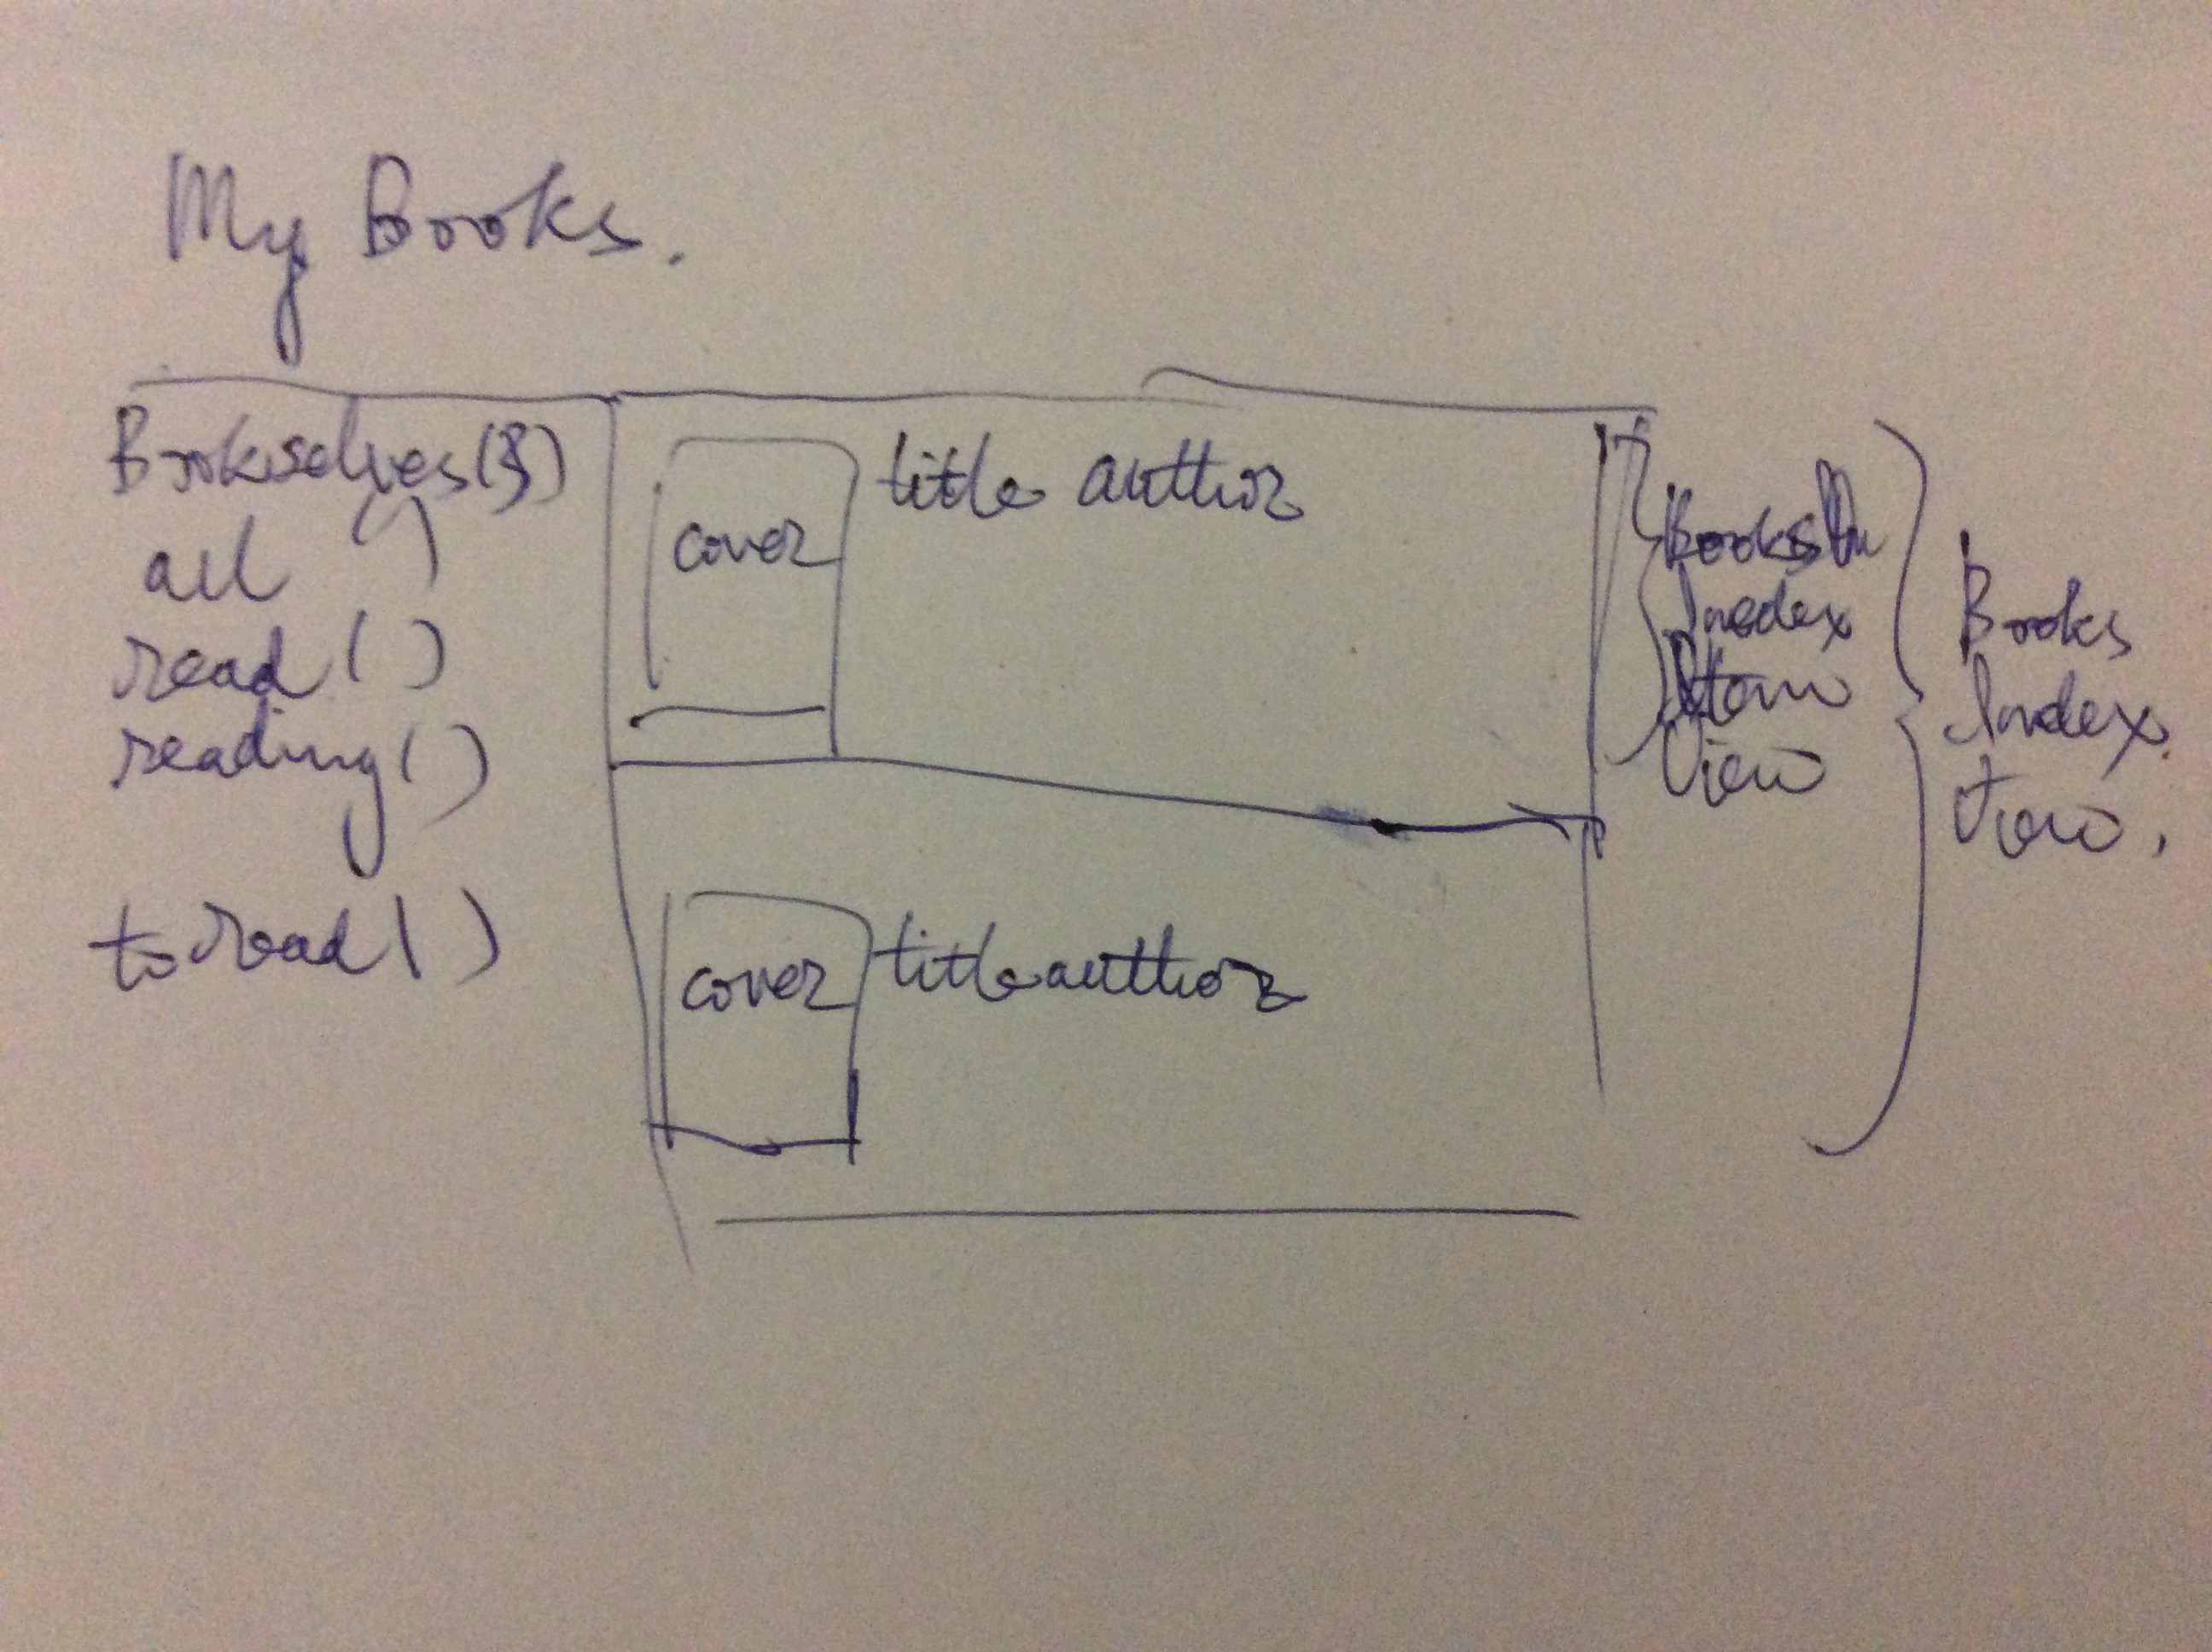 My Books.
Bookselves( )
all ( )
read ( )
reading ( )
to read ( )
cover
title author
cover
title author
Books
Index
Item
View
Books
Index.
View.